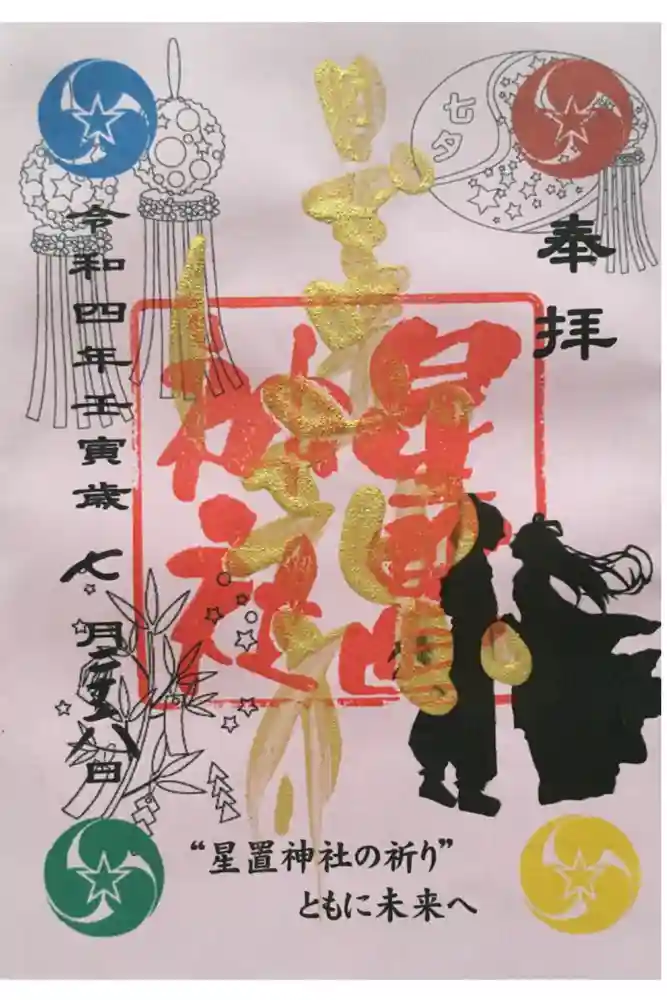 七夕
奉拝
星置神社
星置
神社
令和四年壬寅歳 七月 八日
“星置神社の祈り”
ともに未来へ